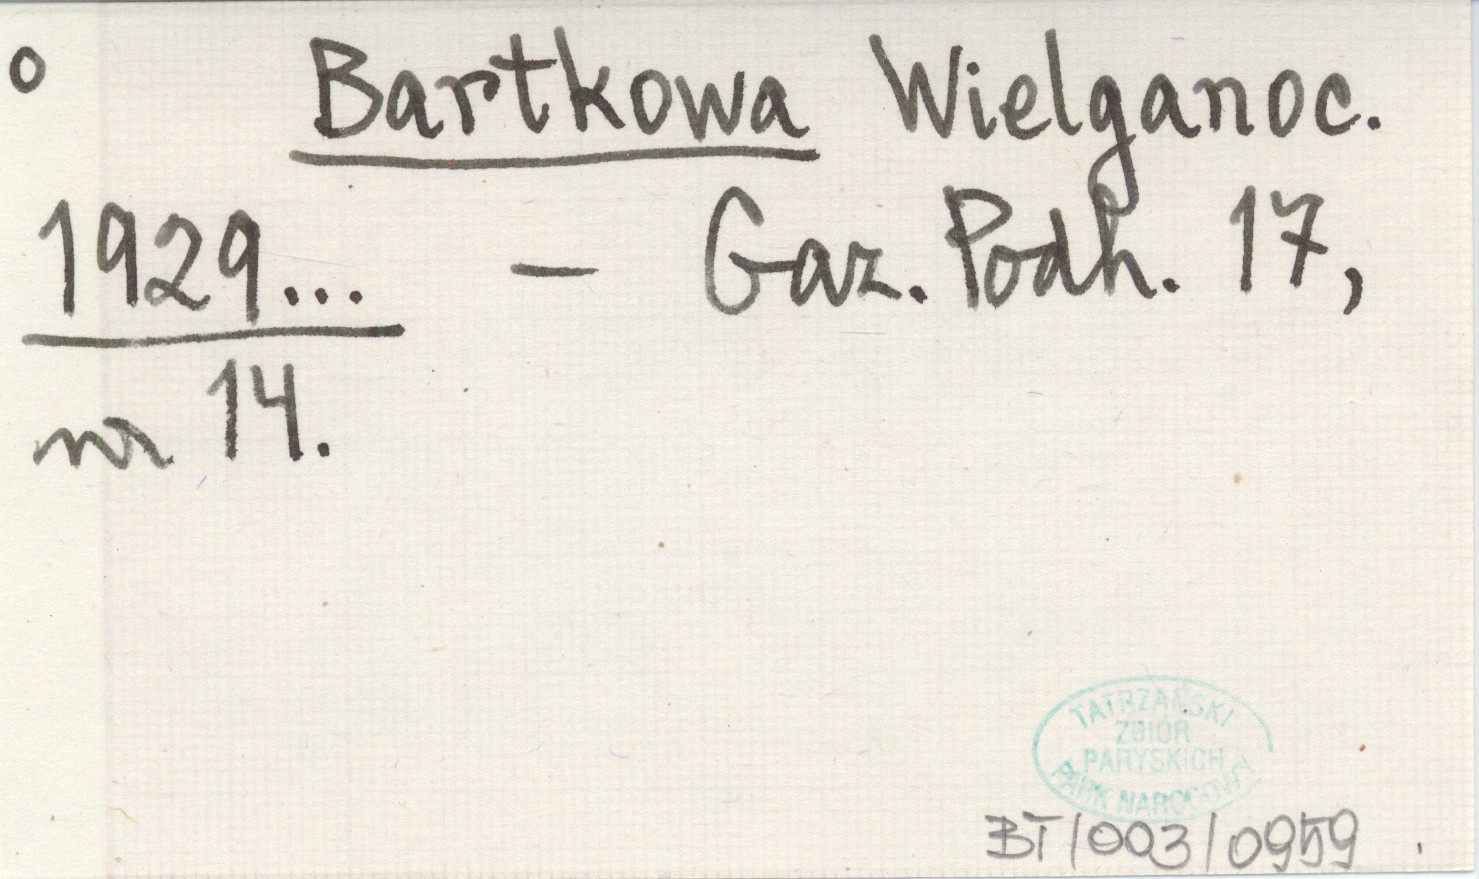 o Bartkowa Wielganoc.
1929... – Gaz. Podh. 17,
nr 14.
TATRZAŃSKI
ZBIÓR
PARYSKICH
PARK NARODOWY
BT/003/0959